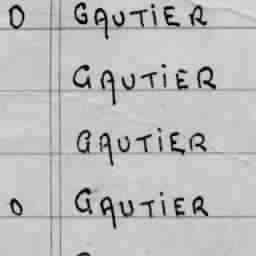 0 GAUTiER
GAUTiER
GAUTiER
0 GAUTiER